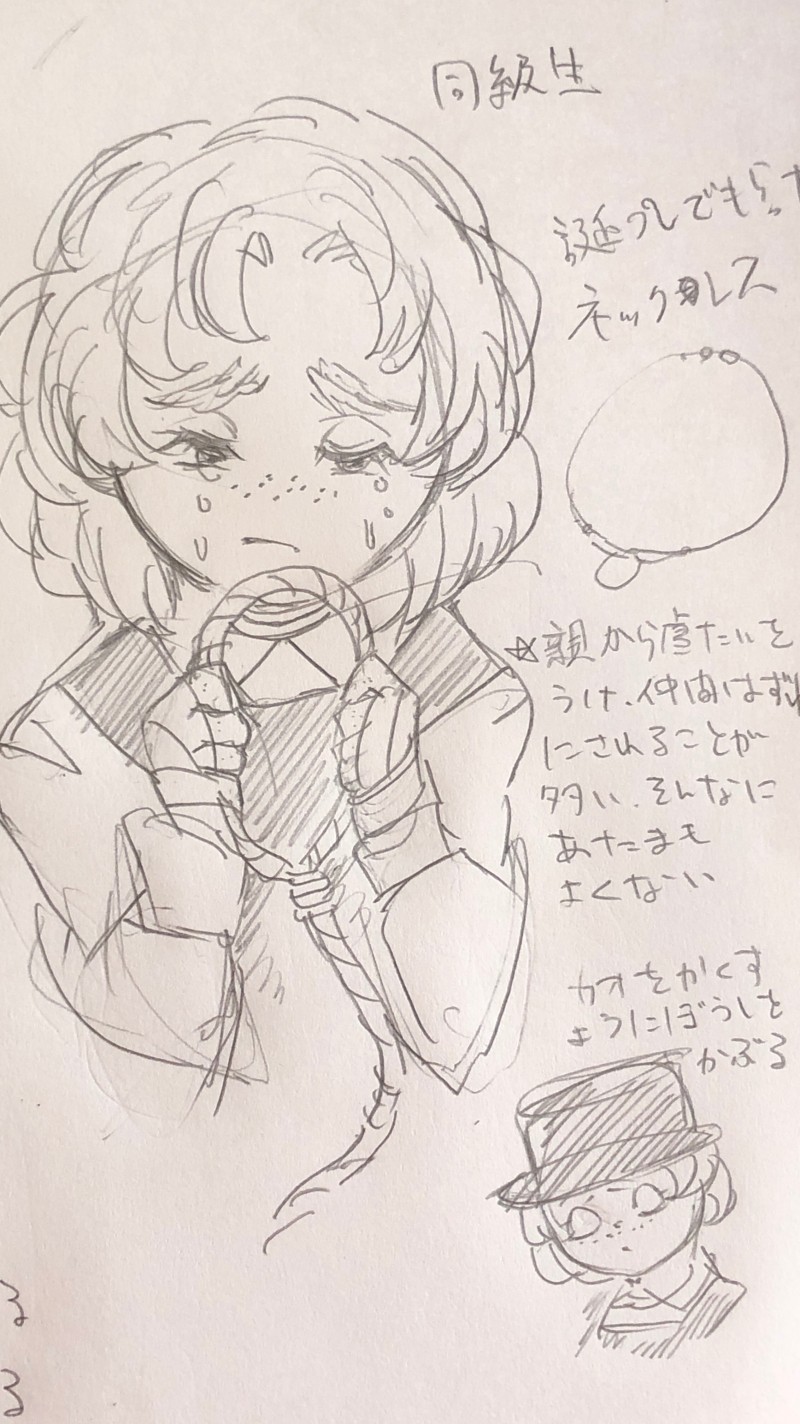 同級生
誕プレでもらった
ネックレス
☆親から虐たいを
うけ、仲間はずれ
にされることが
多い、そんなに
あたまも
よくない
カオをかくす
ようにぼうしを
かぶる
る
る